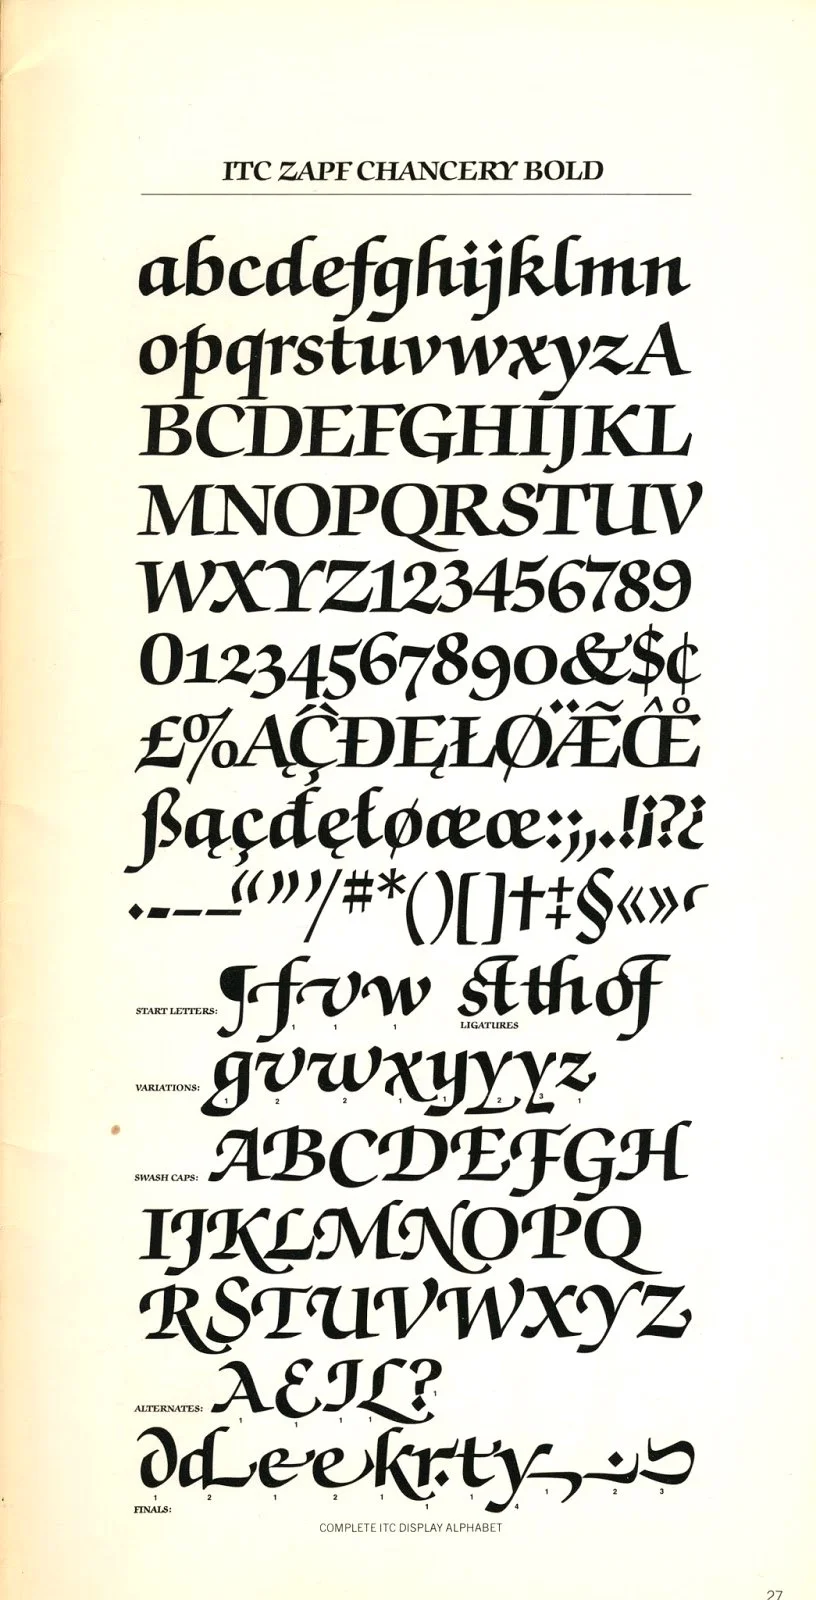 ITC ZAPF CHANCERY BOLD
abcdefghijklmn
opqrstuvwxyzA
BCDEFGHIJKL
MNOPQRSTUV
WXYZ123456789
01234567890&$¢
£%ĄÇĐĘŁØÆŒ
ßąçđęłøæœ:;,.!¡?¿
·-–—“”’/#*()[]†‡§«»‹
START LETTERS: ¶fvw st th of
1 1 1 LIGATURES
VARIATIONS: gvwxyyyz
1 2 2 1 1 2 3 1
SWASH CAPS: ABCDEFGH
IJKLMNOPQ
RSTUVWXYZ
ALTERNATES: AEIL?
1 1 1 1 1
ddeekrty
1 2 1 2 1 1 1 4 1 2 3
FINALS:
COMPLETE ITC DISPLAY ALPHABET
27